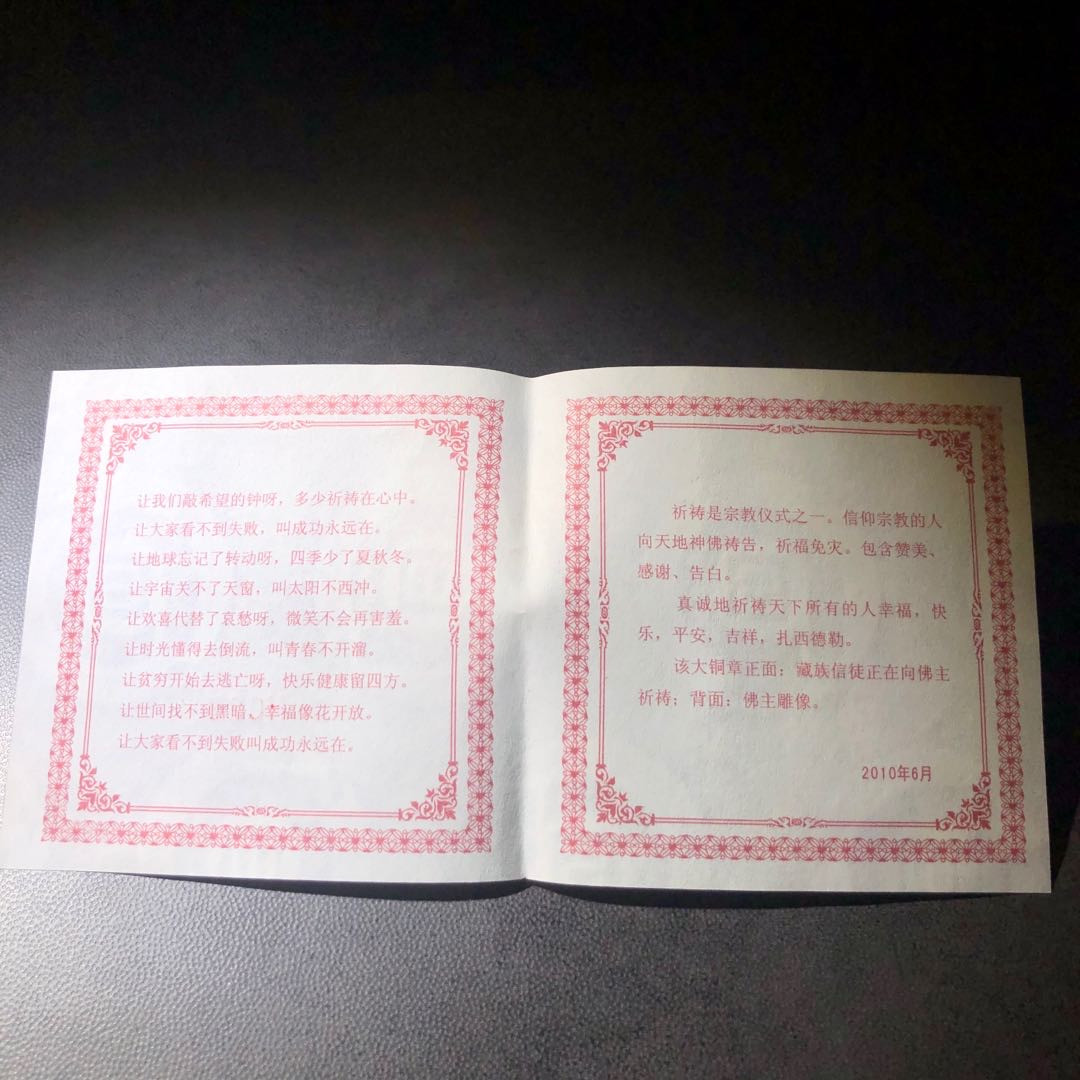 让我们敲希望的钟呀，多少祈祷在心中。
让大家看不到失败，叫成功永远在。
让地球忘记了转动呀，四季少了夏秋冬。
让宇宙关不了天窗，叫太阳不西冲。
让欢喜代替了哀愁呀，微笑不会再害羞。
让时光懂得去倒流，叫青春不开溜。
让贫穷开始去逃亡呀，快乐健康留四方。
让世间找不到黑暗，幸福像花开放。
让大家看不到失败叫成功永远在。
祈祷是宗教仪式之一。信仰宗教的人
向天地神佛祷告，祈福免灾。包含赞美、
感谢、告白。
真诚地祈祷天下所有的人幸福，快
乐，平安，吉祥，扎西德勒。
该大铜章正面：藏族信徒正在向佛主
祈祷；背面：佛主雕像。
2010年6月